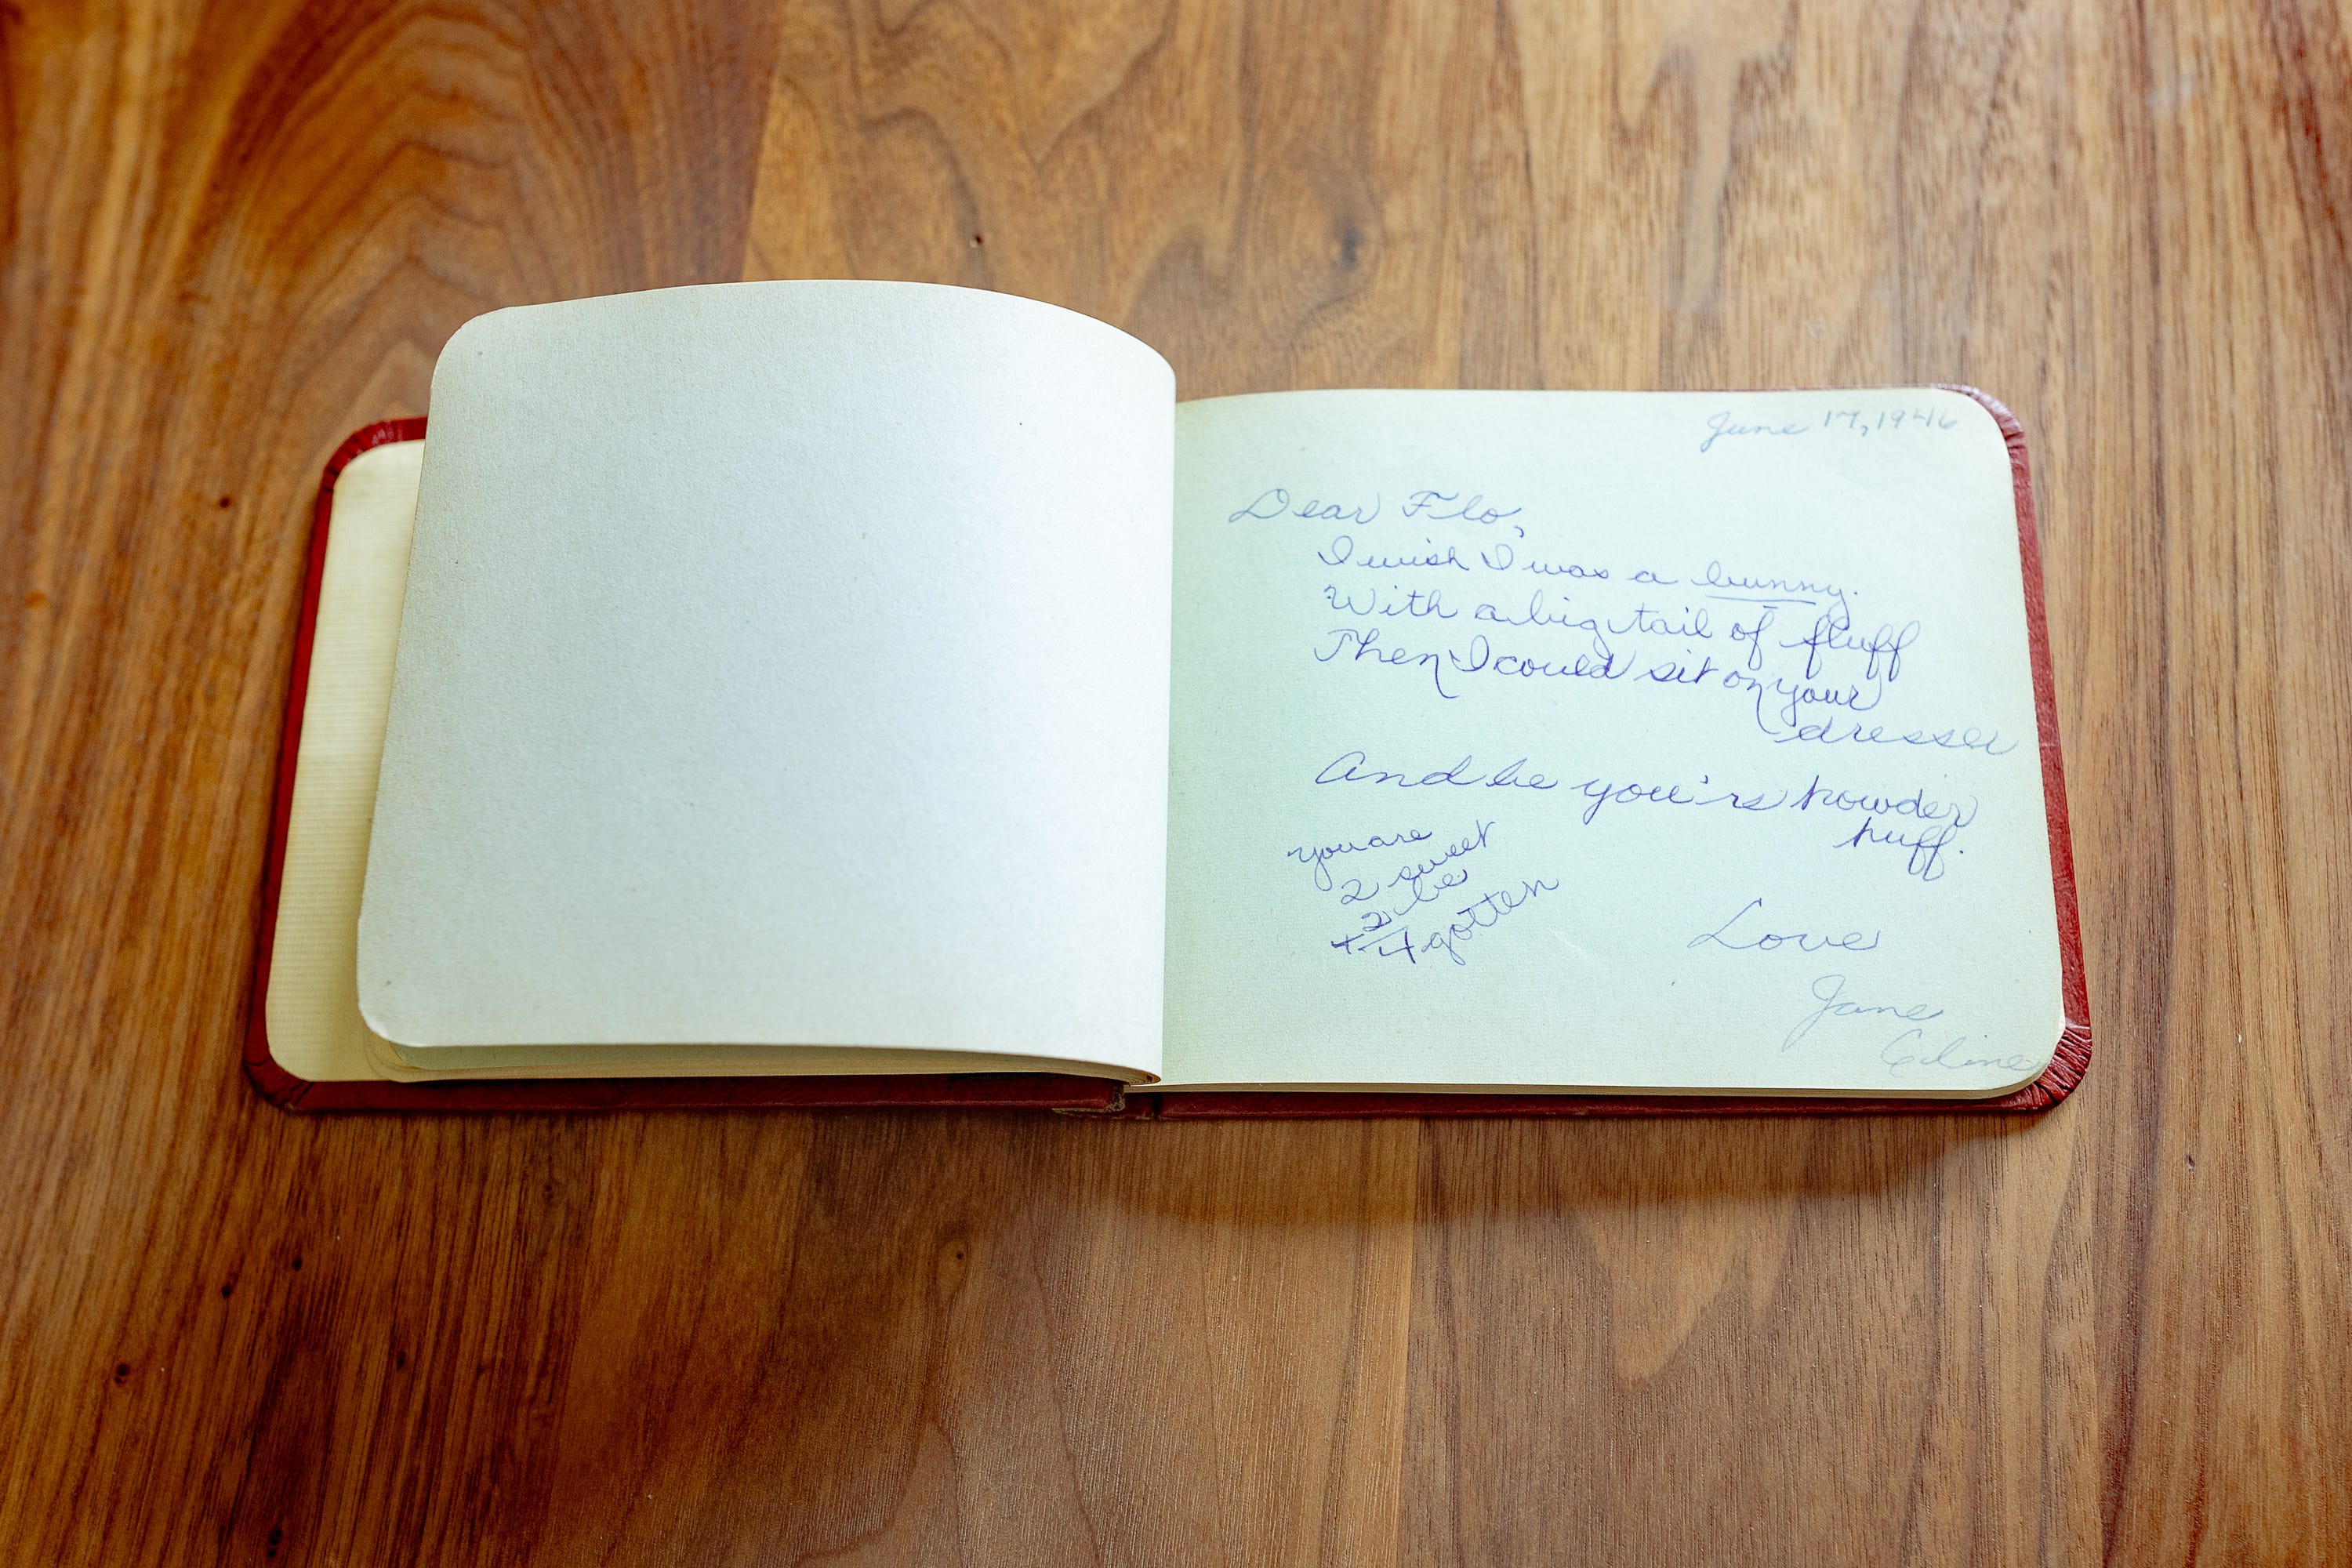 June 17, 1946
Dear Flo,
I wish I was a bunny.
With a big tail of fluff
Then I could sit on your
dresser
And be you'rs powder
puff.
you are
2 sweet
2 be
4 gotten
Love
Jane